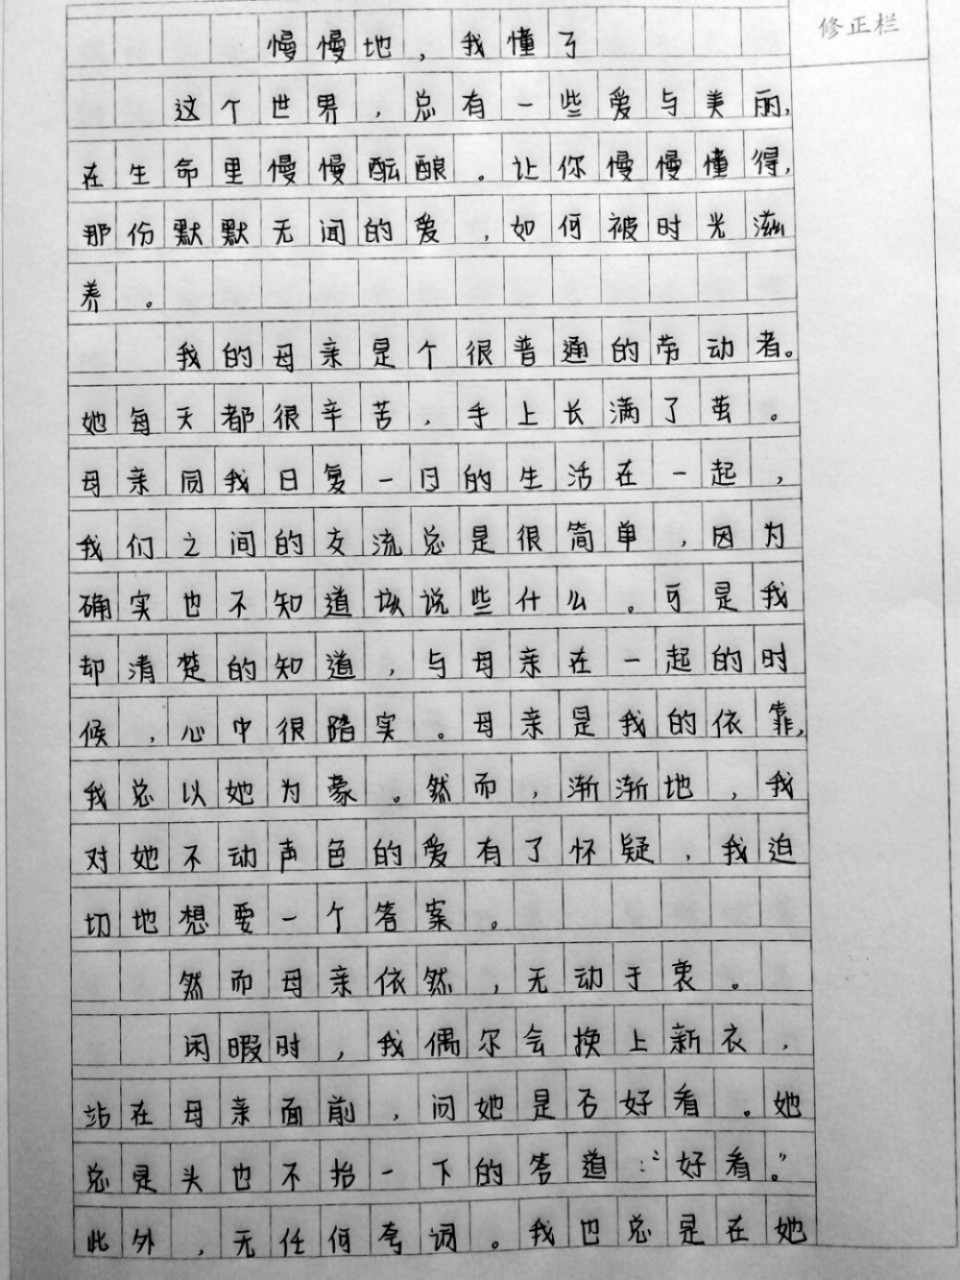 修正栏
慢慢地，我懂了
这个世界，总有一些爱与美丽，
在生命里慢慢酝酿。让你慢慢懂得，
那份默默无闻的爱，如何被时光滋
养。
我的母亲是个很普通的劳动者。
她每天都很辛苦，手上长满了茧。
母亲同我日复一日的生活在一起，
我们之间的交流总是很简单，因为
确实也不知道该说些什么。可是我
却清楚的知道，与母亲在一起的时
候，心中很踏实。母亲是我的依靠，
我总以她为豪。然而，渐渐地，我
对她不动声色的爱有了怀疑，我迫
切地想要一个答案。
然而母亲依然，无动于衷。
闲暇时，我偶尔会换上新衣，
站在母亲面前，问她是否好看。她
总是头也不抬一下的答道：“好看。”
此外，无任何夸词。我也总是在她